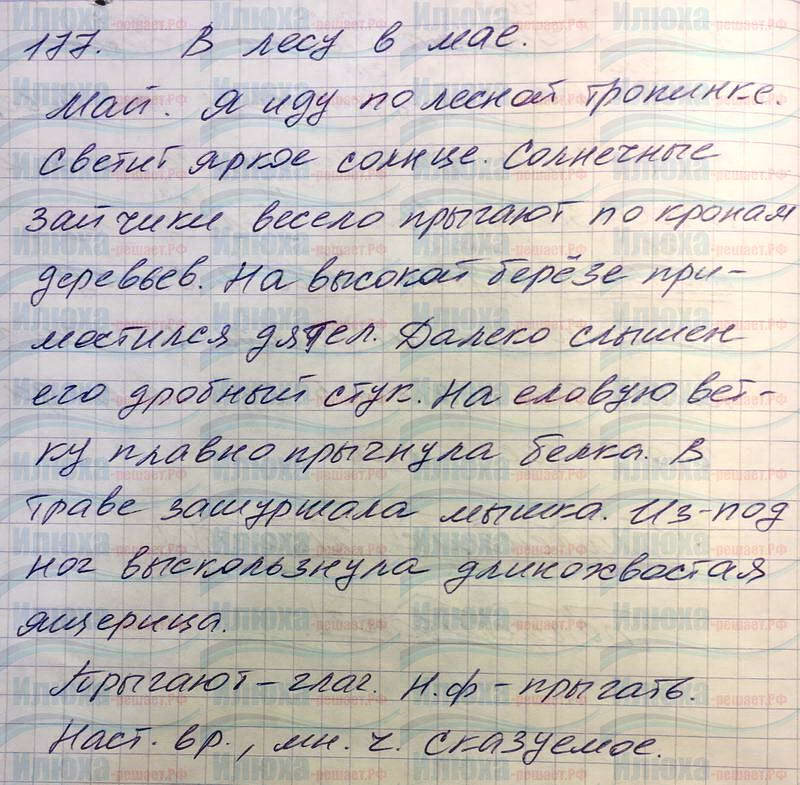 177. В лесу в мае.
Май. Я иду по лесной тропинке.
Светит яркое солнце. Солнечные
зайчики весело прыгают по кронам
деревьев. На высокой берёзе при-
мостился дятел. Далеко слышен
его дробный стук. На еловую вет-
ку плавно прыгнула белка. В
траве зашуршала мышка. Из-под
ног выскользнула длинохвостая
ящерица.
Прыгают – глаг. Н.ф – прыгать.
Наст. вр., мн. ч. сказуемое.
Илюха-решает.рф